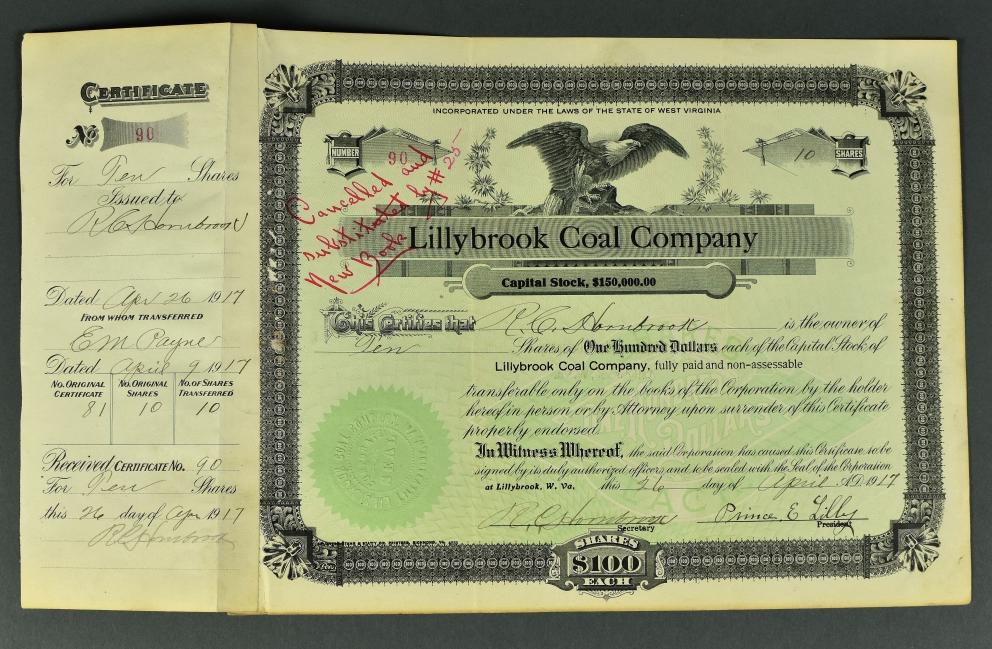 CERTIFICATE
No 90
For Ten Shares
Issued to
R C Hornbrook
Dated Apr 26 1917
FROM WHOM TRANSFERRED
E M Payne
Dated April 9 1917
NO. ORIGINAL CERTIFICATE NO. ORIGINAL SHARES NO. OF SHARES TRANSFERRED
81 10 10
Received CERTIFICATE NO. 90
For Ten Shares
this 26 day of Apr 1917
R C Hornbrook
INCORPORATED UNDER THE LAWS OF THE STATE OF WEST VIRGINIA
NUMBER 90 10 SHARES
Cancelled and
substituted by #25
New Book
Lillybrook Coal Company
Capital Stock, $150,000.00
This Certifies that R. C. Hornbrook is the owner of
Ten Shares of One Hundred Dollars each of the Capital Stock of
Lillybrook Coal Company, fully paid and non-assessable
transferable only on the books of the Corporation by the holder
hereof in person or by Attorney upon surrender of this Certificate
properly endorsed.
In Witness Whereof, the said Corporation has caused this Certificate to be
signed by its duly authorized officers and to be sealed with the Seal of the Corporation
at Lillybrook, W. Va. this 26 day of April A.D. 1917
R. C. Hornbrook Prince E Lilly
Secretary President
SHARES
$100
EACH